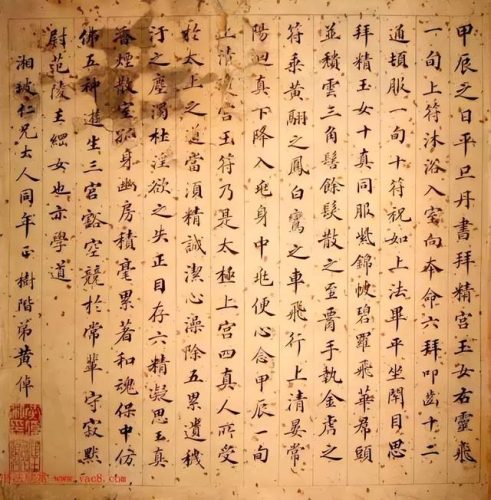 甲辰之日平旦丹書拜精宮玉女右靈飛
一旬上符沐浴入室向本命六拜叩齒十二
通頓服一旬十符祝如上法畢平坐閉目思
拜精玉女十真同服紫錦帔碧羅飛華帬頭
並積雲三角髻餘髮散之至腰手執金虎之
符乘黃翮之鳳白鸞之車飛行上清晏常
陽迴真下降入兆身中兆便心念甲辰一旬
上清宮玉符乃是太極上宮四真人所受
於太上之道當須精誠潔心澡除五累遺穢
汙之塵濁杜淫欲之失正目存六精凝思玉真
香煙散室孤身幽房積毫累著和魂保中仿
佛五種遊生三宮豁空競於常輩守寂默
尉范陵王綑女也亦學道
湘玻仁兄大人同年正 樹階弟黃倬
www.yac8.com